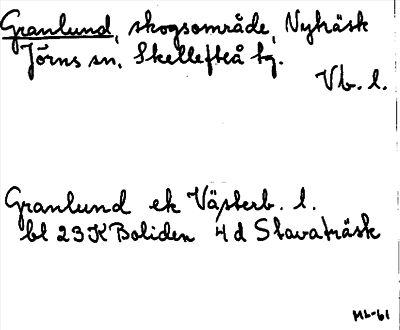 Granlund, skogsområde, Nyträsk
Jörns sn. Skellefteå tg.
Vb. l.
Granlund ek Västerb. l.
bl 23K Boliden 4d Stavaträsk
ML-61